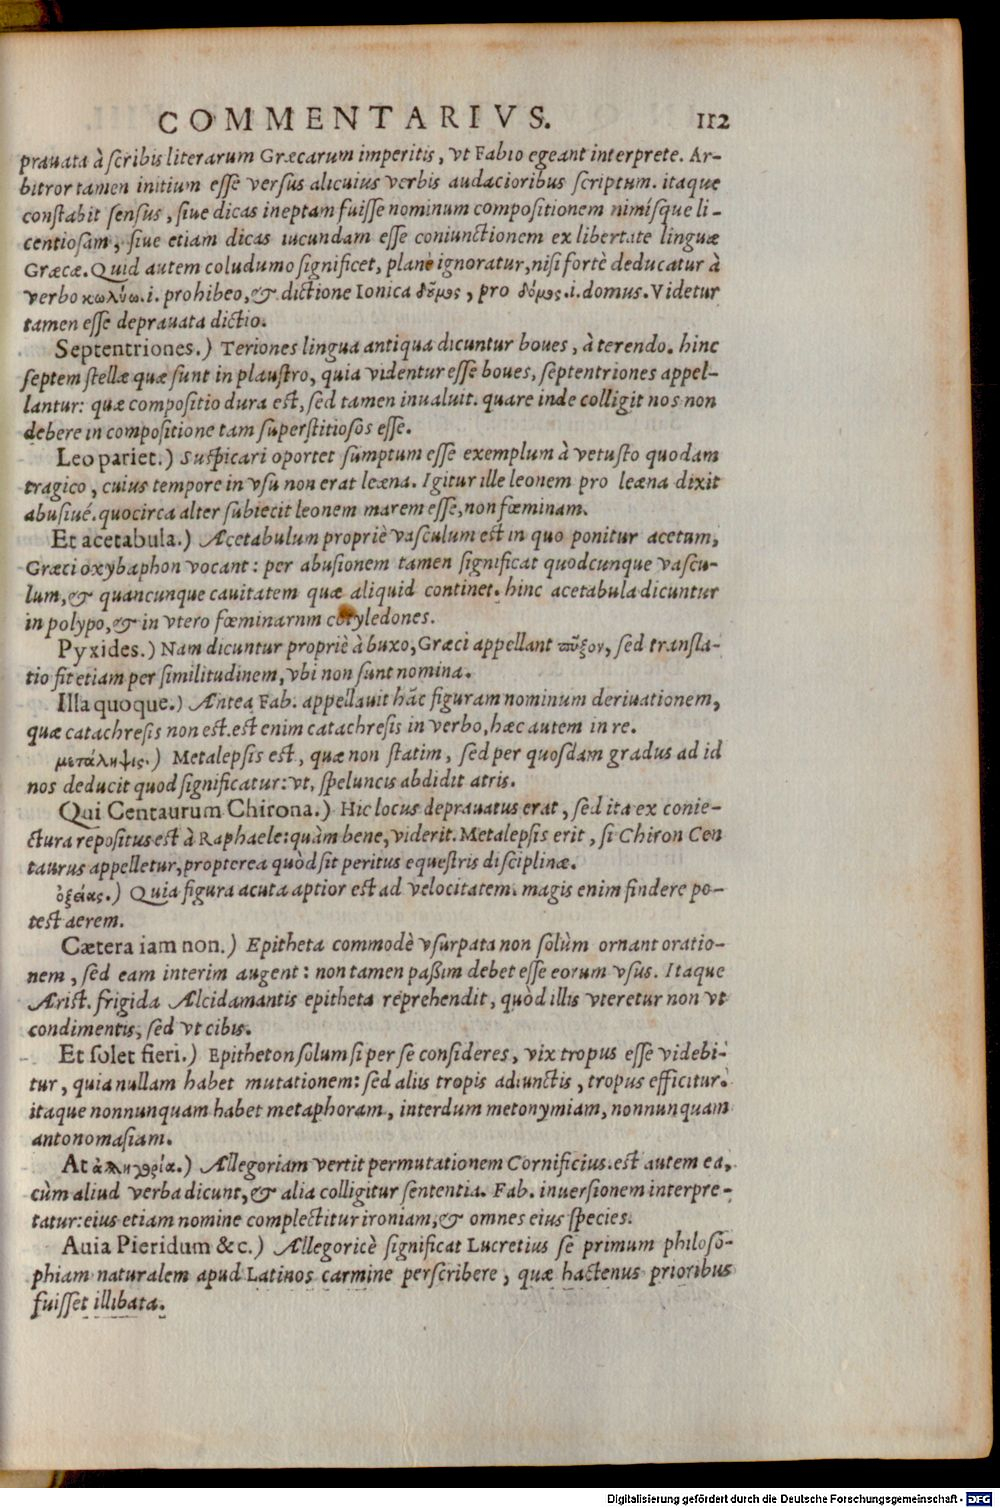 COMMENTARIVS. 112
prauata à scribis literarum Græcarum imperitis, vt Fabio egeant interprete. Ar-
bitror tamen initium esse versus alicuius verbis audacioribus scriptum. itaque
constabit sensus, siue dicas ineptam fuisse nominum compositionem nimísque li-
centiosam, siue etiam dicas iucundam esse coniunctionem ex libertate linguæ
Græcæ. Quid autem coludumo significet, planè ignoratur, nisi fortè deducatur à
verbo κωλύω. i. prohibeo, & dictione Ionica δοῦμος, pro δόμος. i. domus. Videtur
tamen esse deprauata dictio.
Septentriones.) Teriones lingua antiqua dicuntur boues, à terendo. hinc
septem stellæ quæ sunt in plaustro, quia videntur esse boues, septentriones appel-
lantur: quæ compositio dura est, sed tamen inualuit. quare inde colligit nos non
debere in compositione tam superstitiosos esse.
Leo pariet.) Suspicari oportet sumptum esse exemplum à vetusto quodam
tragico, cuius tempore in vsu non erat leæna. Igitur ille leonem pro leæna dixit
abusiué. quocirca alter subiecit leonem marem esse, non fœminam.
Et acetabula.) Acetabulum propriè vasculum est in quo ponitur acetum,
Græci oxybaphon vocant: per abusionem tamen significat quodcunque vascu-
lum, & quancunque cauitatem quæ aliquid continet. hinc acetabula dicuntur
in polypo, & in vtero fœminarnm cotyledones.
Pyxides.) Nam dicuntur propriè à buxo, Græci appellant πύξον, sed transla-
tio fit etiam per similitudinem, vbi non sunt nomina.
Illa quoque.) Antea Fab. appellauit hāc figuram nominum deriuationem,
quæ catachresis non est. est enim catachresis in verbo, hæc autem in re.
μετάληψις.) Metalepsis est, quæ non statim, sed per quosdam gradus ad id
nos deducit quod significatur: vt, speluncis abdidit atris.
Qui Centaurum Chirona.) Hic locus deprauatus erat, sed ita ex conie-
ctura repositus est à Raphaele: quàm bene, viderit. Metalepsis erit, si Chiron Cen
taurus appelletur, propterea quòd sit peritus equestris disciplinæ.
ὀξείας.) Quia figura acuta aptior est ad velocitatem. magis enim findere po-
test aerem.
Cætera iam non.) Epitheta commodè vsurpata non solùm ornant oratio-
nem, sed eam interim augent: non tamen paßim debet esse eorum vsus. Itaque
Arist. frigida Alcidamantis epitheta reprehendit, quòd illis vteretur non vt
condimentis, sed vt cibis.
Et solet fieri.) Epitheton solum si per se consideres, vix tropus esse videbi-
tur, quia nullam habet mutationem: sed aliis tropis adiunctis, tropus efficitur.
itaque nonnunquam habet metaphoram, interdum metonymiam, nonnunquam
antonomasiam.
At ἀλληγορία.) Allegoriam vertit permutationem Cornificius. est autem ea,
cùm aliud verba dicunt, & alia colligitur sententia. Fab. inuersionem interpre-
tatur: eius etiam nomine complectitur ironiam, & omnes eius species.
Auia Pieridum &c.) Allegoricè significat Lucretius se primum philoso-
phiam naturalem apud Latinos carmine perscribere, quæ hactenus prioribus
fuisset illibata.
Digitalisierung gefördert durch die Deutsche Forschungsgemeinschaft - DFG